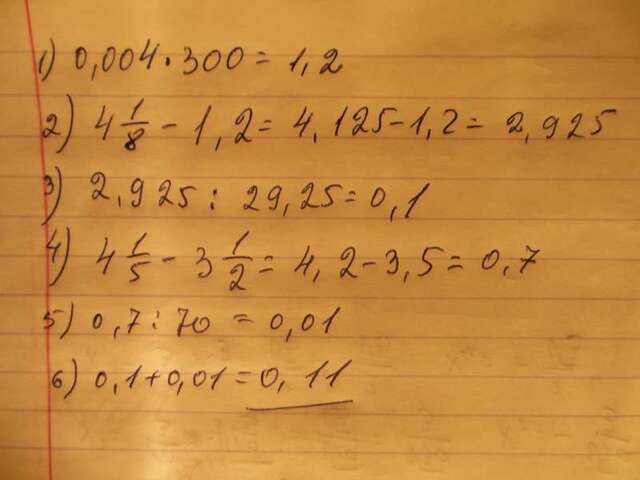 1) 0,004·300=1,2
2) 4 1/8 - 1,2= 4,125-1,2= 2,925
3) 2,925 : 29,25=0,1
4) 4 1/5 - 3 1/2 = 4,2-3,5=0,7
5) 0,7:70 =0,01
6) 0,1+0,01=0,11